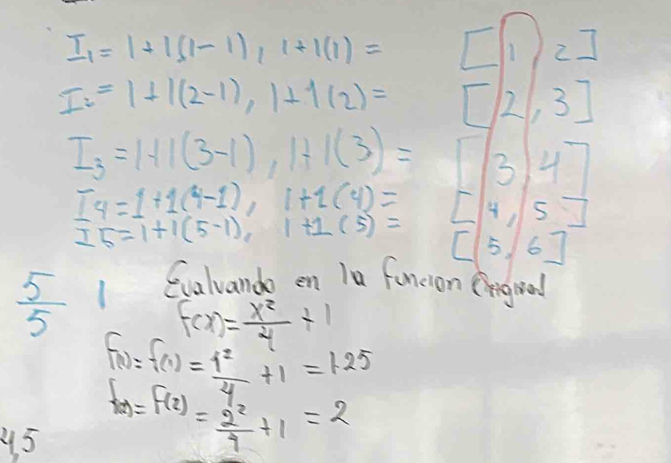 I₁ = 1+1(1-1), 1+1(1) = [1, 2]
I₂ = 1+1(2-1), 1+1(2) = [2, 3]
I₃ = 1+1(3-1), 1+1(3) = [3, 4]
I4 = 1+1(4-1), 1+1(4) = [4, 5]
I5 = 1+1(5-1), 1+1(5) = [5, 6]
5/5 1 Evaluando en la funcion Original
f(x) = x²/4 + 1
f(1) = f(1) = 1²/4 + 1 = 1.25
= f(2) = 2²/4 + 1 = 2
4,5